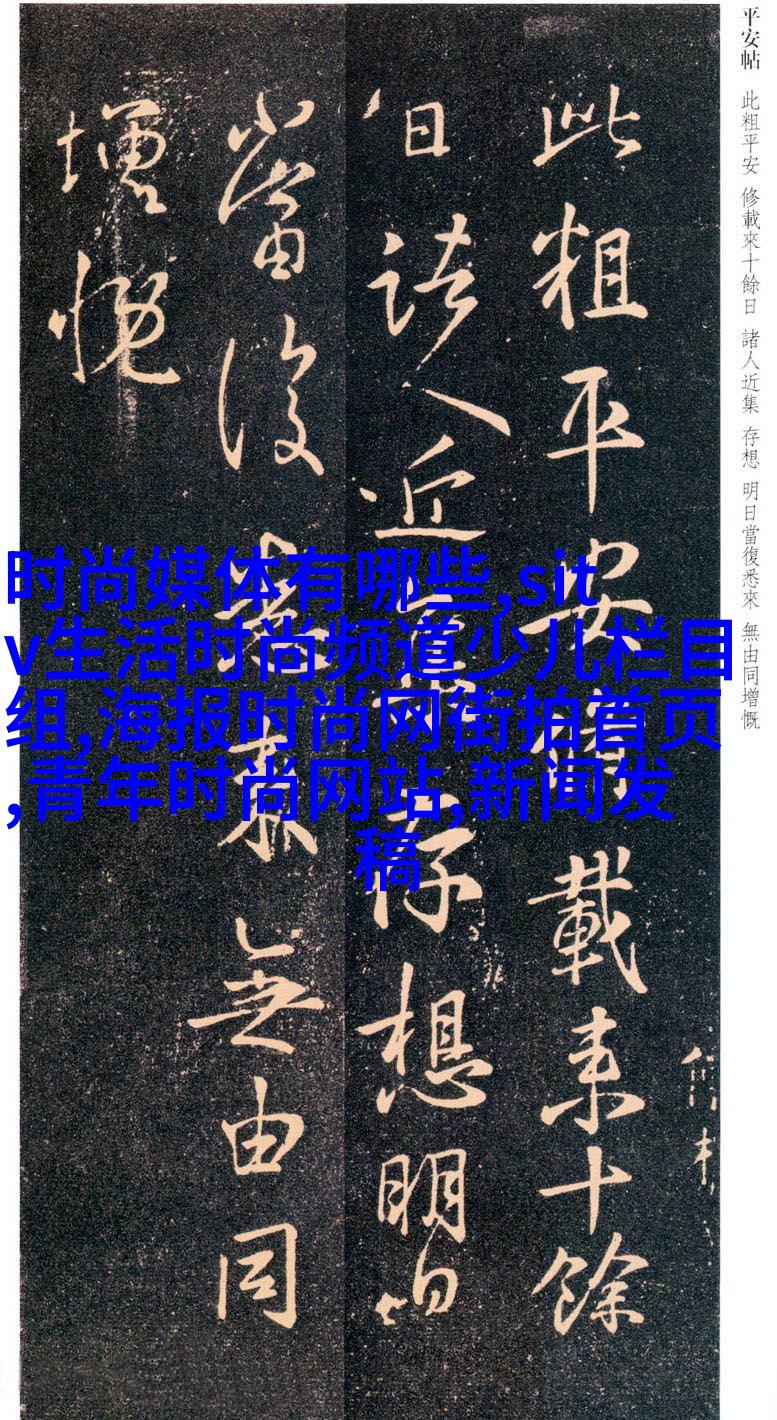 平安帖 此粗平安 修載來十餘日 諸人近集 存想 明日當復悉來 無由同增慨
此粗平安修載来十餘
日諸人近集存想明日
當復悉来無由同
增慨
时尚媒体有哪些,sit
v生活时尚频道少儿栏目
组,海报时尚网街拍首页
,青年时尚网站,新闻发
稿